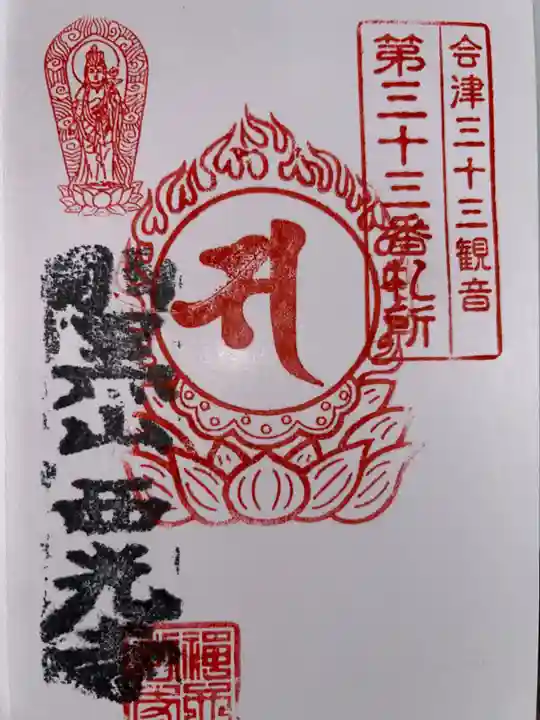 会津三十三観音
第三十三番札所
山西光寺